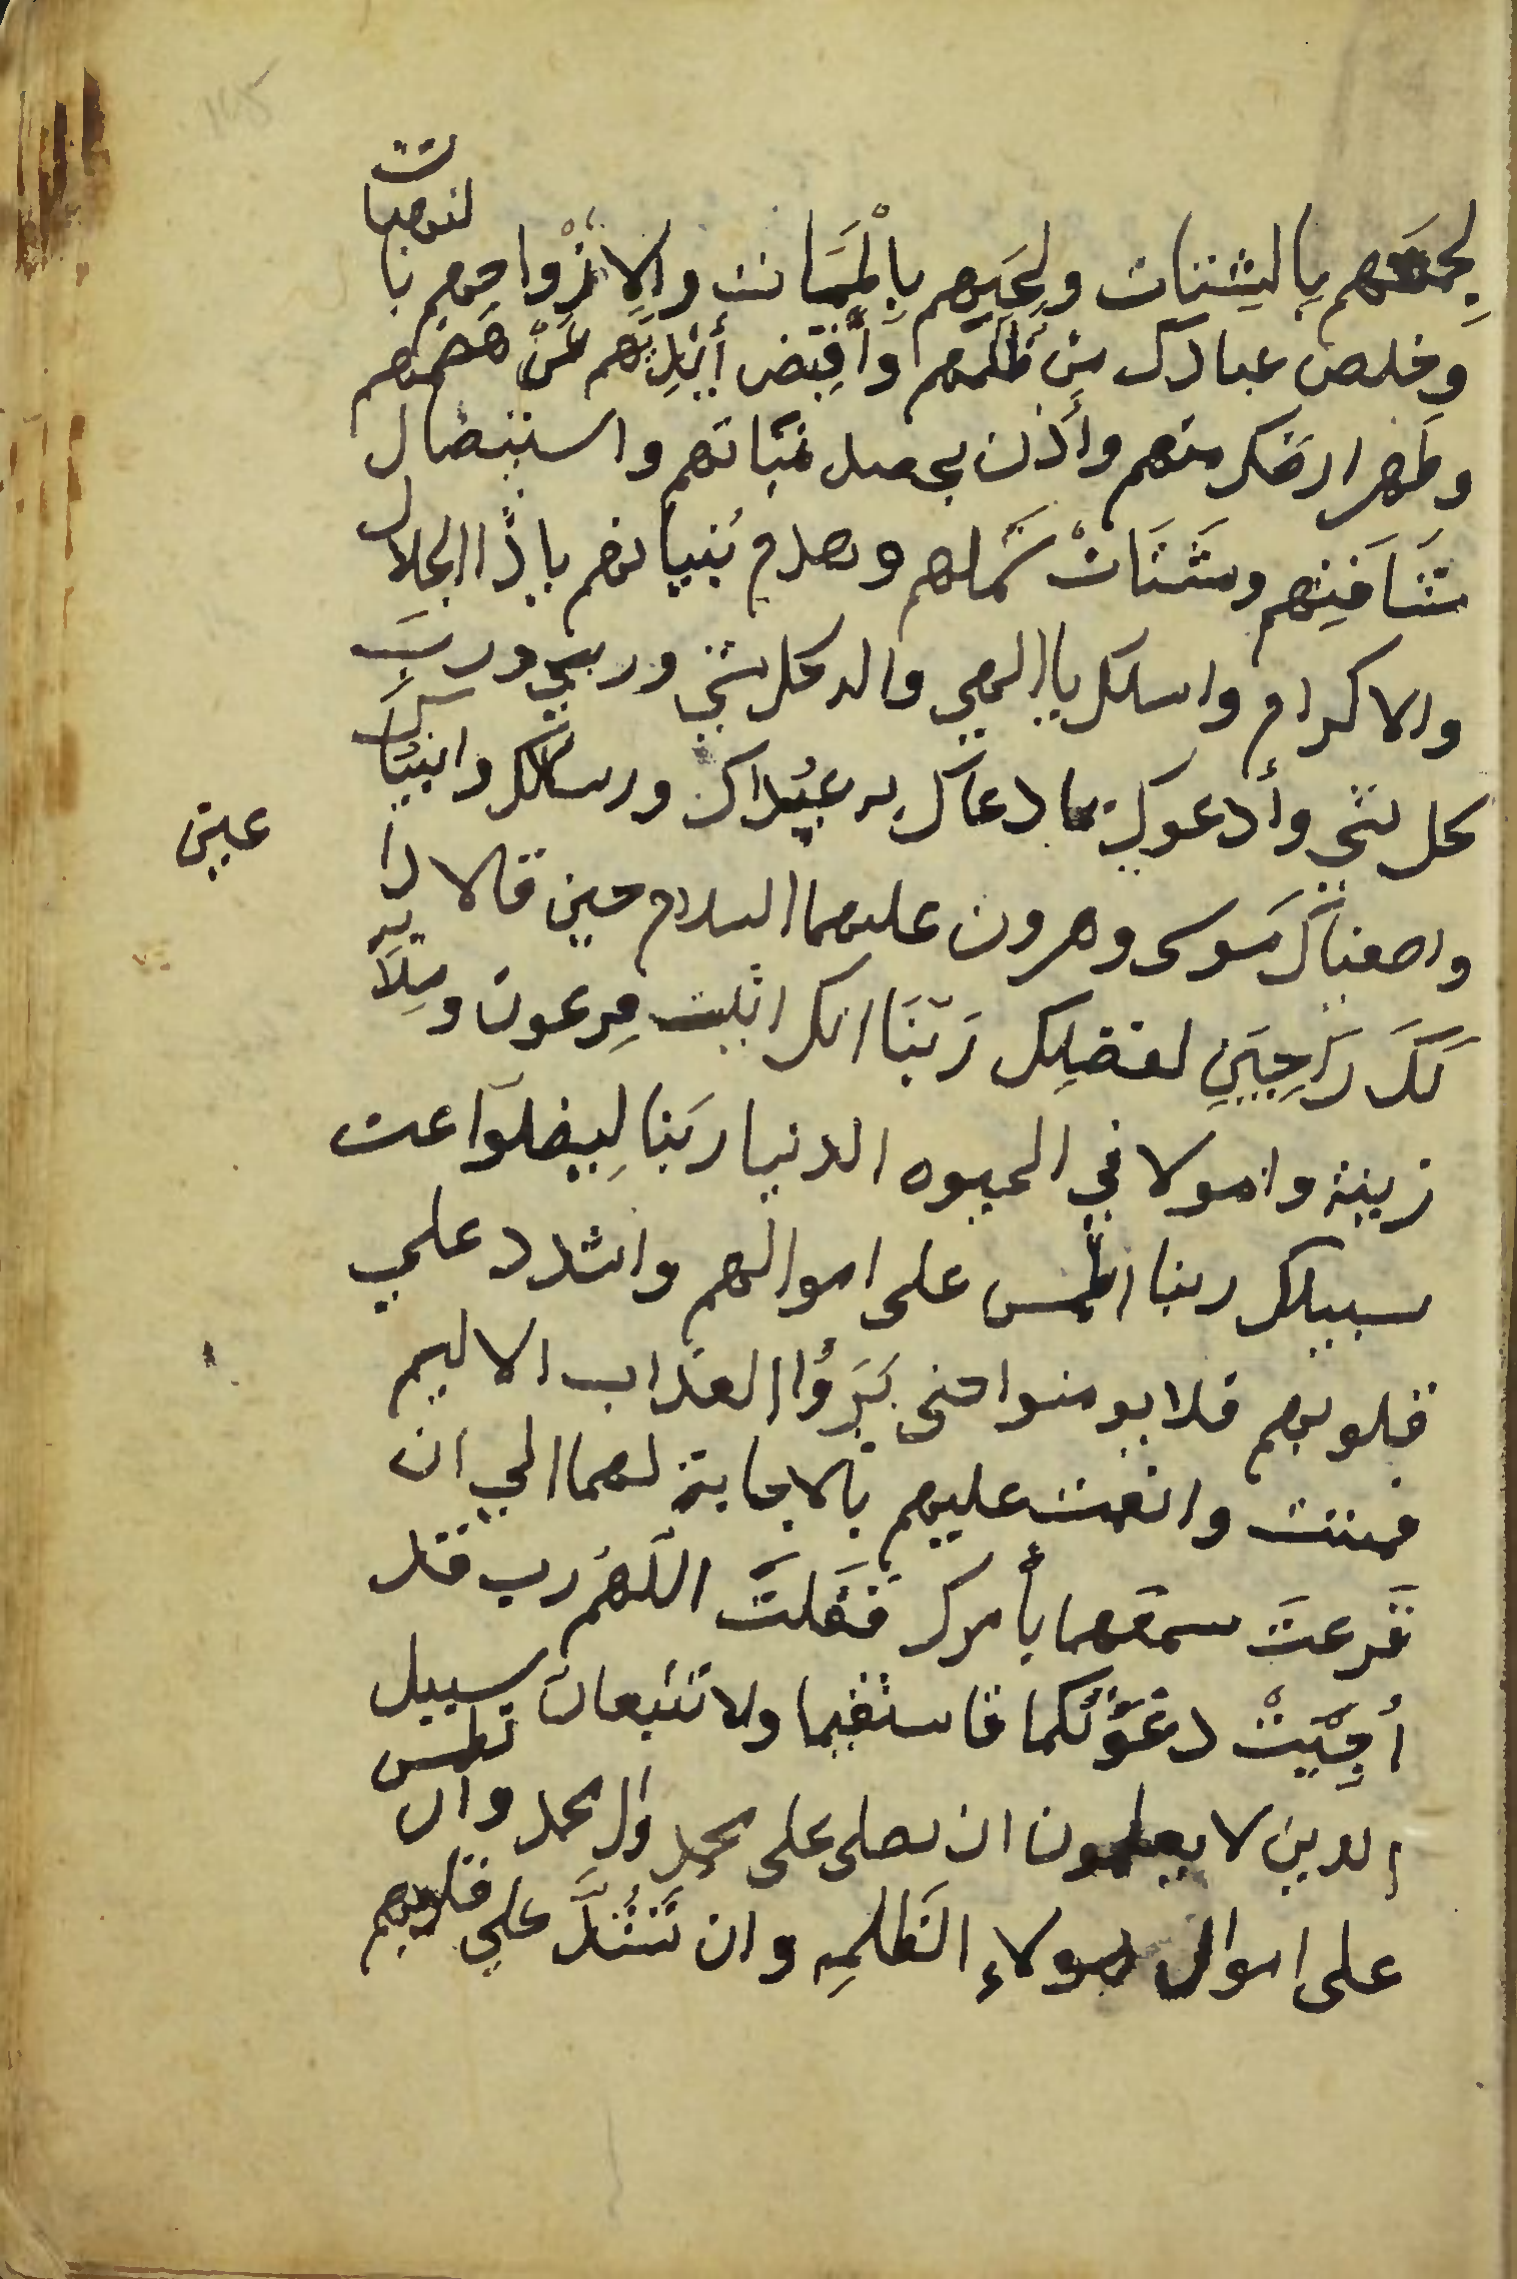 لجمعهم بالشتات ولحيهم بالممات ولازواجهم بالنهبات
وخلص عبادك من ظلمهم وأقبض أيديهم عن هضمهم
وطهر ارضك منهم وأذن بحصد نباتهم واستيصال
شافتهم وشتات شملهم وهدم بنيانهم ياذا الجلال
والاكرام واسلك يا الهي واله كل شي وربي ورب
كل شي وأدعوك بما دعاك به عبداك ورسلك وانبياك
واصفياك موسى وهرون عليهما السلام حين قالا داعين
لك راجين لفضلك ربنا انك اتيت فرعون وملأه
زينة واموالا في الحيوه الدنيا ربنا ليضلوا عن
سبيلك ربنا اطمس على اموالهم واشدد علي
قلوبهم فلا يومنوا حتى يروا العذاب الاليم
فمننت وانعمت عليهم بالاجابة لهما الي ان
قرعت سمعهما بأمرك فقلت اللهم رب قد
أجيبت دعوتكما فاستقيما ولا تتبعان سبيل
الدين لا يعلمون ان تصلى على محمد وال محمد وان تطمس
على اموال هولاء الظلمه وان تشدد على قلوبهم